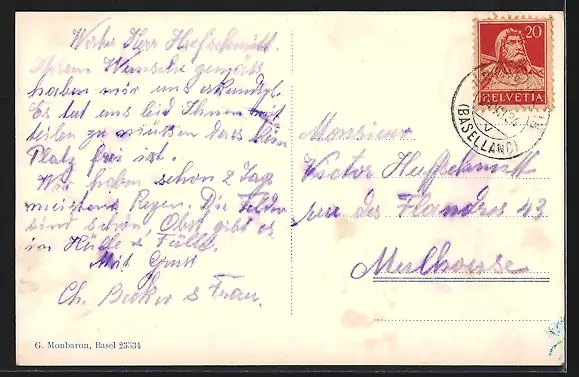 Werter Herr Hufschmitt.
Ihrem Wunsche gemäss
haben wir uns erkundigt.
Es tut uns leid Ihnen mit
teilen zu müssen dass kein
Platz frei ist.
Wir haben schon 2 Tag
meistens Regen. Die Felder
sind schön, Obst gibt es
in Hülle & Fülle.
Mit Gruss
Ch. Becker & Frau.
G. Monbaron, Basel 25334
20
HELVETIA
(BASELLAND)
Monsieur
Victor Huffschmitt
rue des Flandres 43
Mulhouse